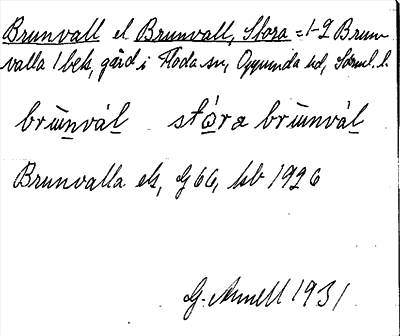 Brunvall el Brunvall, Stora = 1-2 Brun-
valla 1 bek, gård i Floda sn, Oppunda hd, Söml. l.
brùnvál stóra brùnvál
Brunvalla ek, G 66, kb 1926
G. Annell 1931